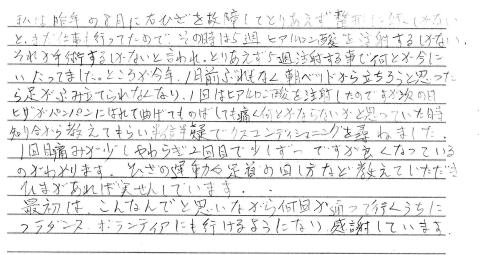 私は昨年の8月に右ひざを故障してとりあえず整形に行くしかない
と、まず仕事行ってたので その時は5週 ヒアルロン酸を注射するしかない、
それか手術するしかないと言われ、とりあえず5週注射する事で何とか今に
いたってました。ところが今年、1月前ぶれもなく朝ベッドから立ちろうと思った
ら足がふみ立てられなくなり、1回はヒアルロン酸を注射したのですが次の日
ヒザがパンパンにはれて曲げてものばしても痛く何とかならないかと思っていた時
知り合から教えてもらい半信半疑でコンディショニングを尋ねました。
1回目痛みが少しやわらぎ2回目で少しずつですが良くなっている
のがわかります。ひざの運動や足首の回し方など教えていただき
ひまがあれば実せんしています。
最初は、こんなんでと思いながら何回か通って行くうちに
フラダンス、ボランティアにも行けるようになり感謝しています。